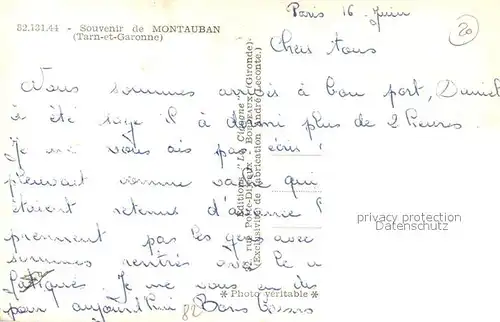 82.131.44 - Souvenir de MONTAUBAN
(Tarn-et-Garonne)
Paris 16 Juin
20
Chers tous
Nous sommes arrivés à bon port, Daniel
à été sage il à dormi plus de 2 heures.
Je ne vous ais pas écris
pleuvait comme vache qui
étaient retenus d'avance
prennent pas les gens avec
sommes rentrés
fatigués Je ne vous en dis
pour aujourd'hui Bons Baisers
82
Editions "La Cigogne"
rue Porte-Dijeaux - BORDEAUX (Gironde)
(Exclusivités de Fabrication André Leconte.)
* Photo véritable *
privacy protection
AnsichtskartenCenter.de